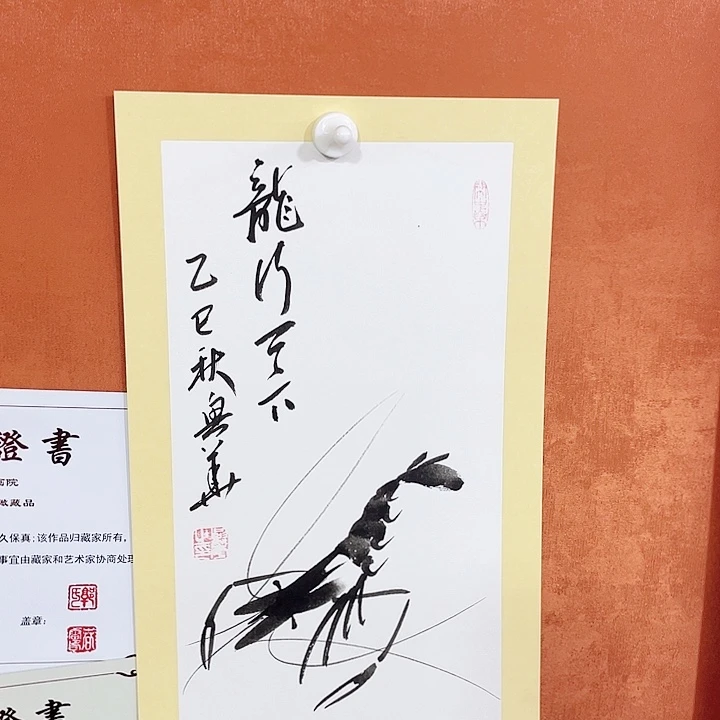 龍行天下
乙巳秋奥華
證書
画院
藏品
久保真;该作品归藏家所有,
事宜由藏家和艺术家协商处理
盖章:
證書